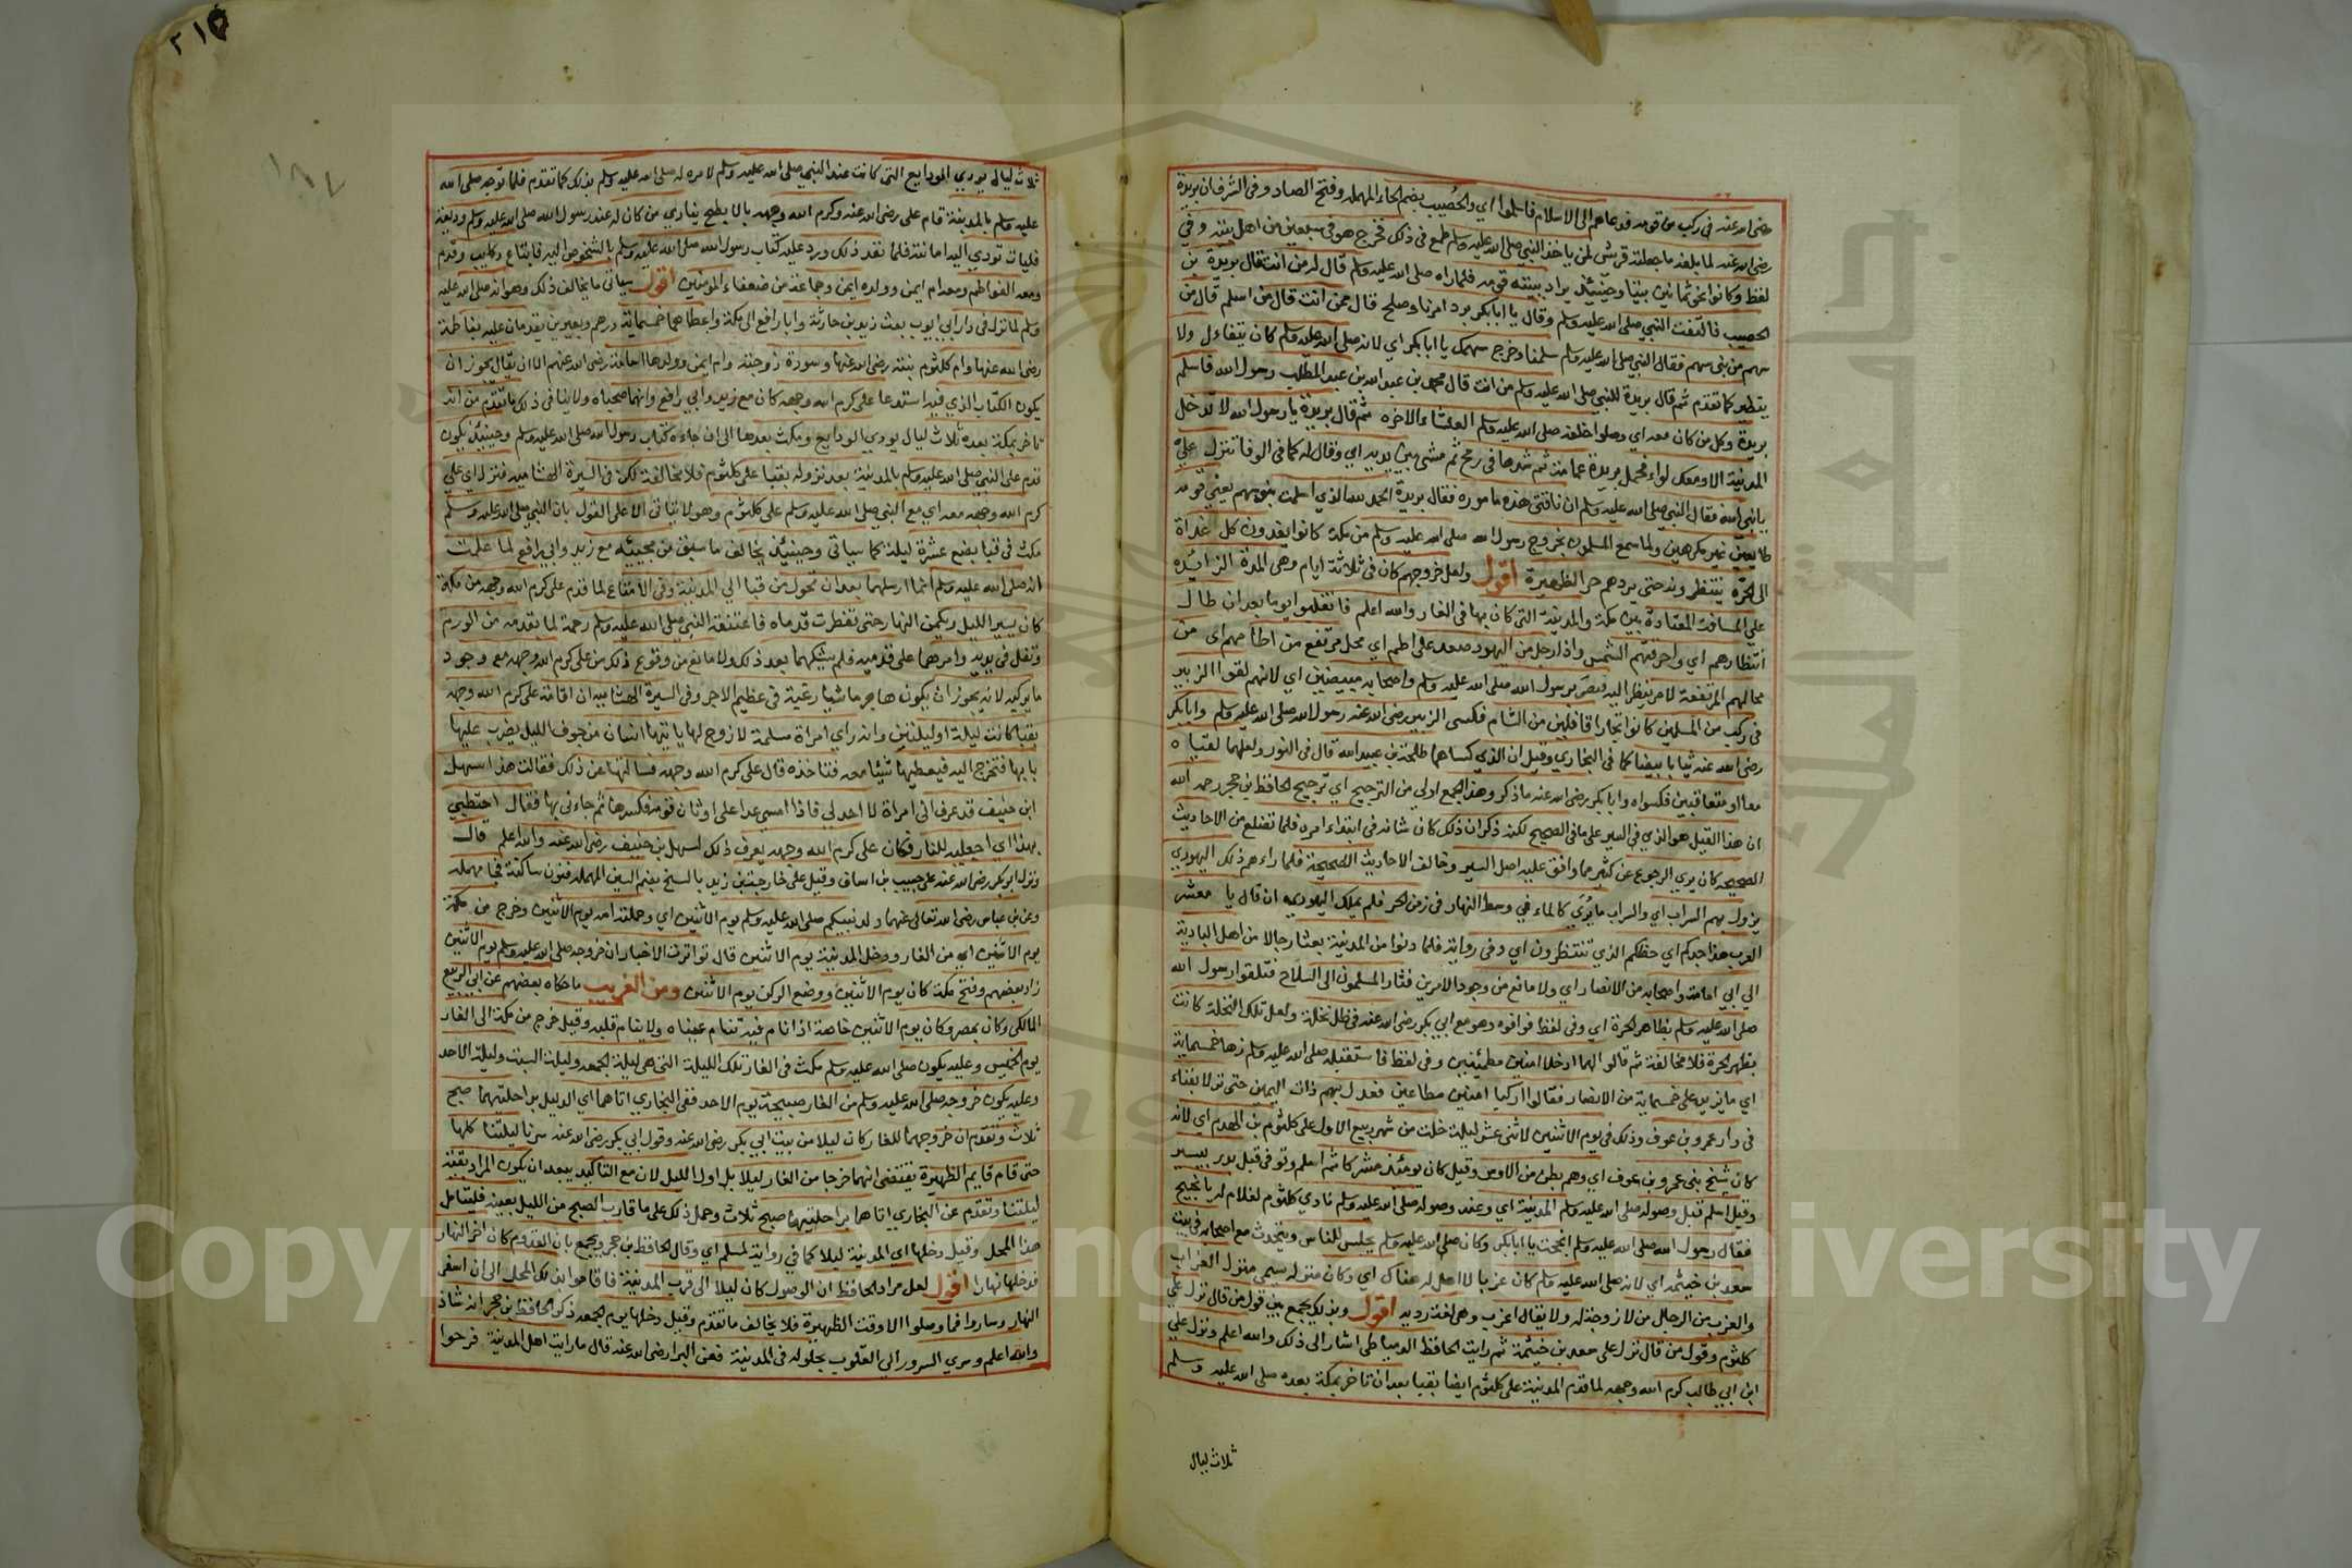 رضى الله عنه فى ركب من قومه فدعاهم الى الاسلام فاسلموا اي والحُصيب بضم الحاء المهمله وفتح الصاد وفى الشرف ان بريدة
رضى الله عنه لما بلغه ما جعلته قريش لمن ياخذ النبي صلى الله عليه وسلم طمع فى ذلك فخرج هو فى سبعين من اهل بيته وفي
لفظ وكانوا نحو ثمانين بيتا وحينئذ يراد ببيته قومه فلما راه صلى الله عليه وسلم قال له من انت قال بريدة بن
الحصيب فالتفت النبي صلى الله عليه وسلم وقال يا ابا بكر برد امرنا وصلح قال ممن انت قال من اسلم قال من
سهم من بني سهم فقال النبي صلى الله عليه وسلم سلمنا وخرج سهمك يا ابا بكر اي لانه صلى الله عليه وسلم كان يتفاءل ولا
يتطير كما تقدم ثم قال بريدة للنبي صلى الله عليه وسلم من انت قال محمد بن عبد الله بن عبد المطلب رسول الله فاسلم
بريدة وكل من كان معه اي وصلوا خلفه صلى الله عليه وسلم العشاء الاخره ثم قال بريدة يا رسول الله لا تدخل
المدينة الا ومعك لواء فحل بريدة عمامته ثم شدها فى رمح ثم مشى بين يديه اي وقال له كما فى الوفا تنزل عليّ
يا نبي الله فقال النبي صلى الله عليه وسلم ان ناقتى هذه ماموره فقال بريدة الحمد لله الذي اسلمت بنو سهم يعني قومه
طايعين غير مكرهين ولما سمع المسلمون بخروج رسول الله صلى الله عليه وسلم من مكة كانوا يغدون كل غداة
الى الحرّة ينتظرونه حتى يردهم حر الظهيرة اقول ولعل خروجهم كان فى ثلاثة ايام وهى المدة الزائيده
على المسافة المعتادة بين مكة والمدينة التى كان بها فى الغار والله اعلم فانقلبوا يوما بعد ان طال
انتظارهم اي واحرقتهم الشمس واذا رجل من اليهود صعد على اطم اي محل مرتفع من اطامهم اى من
محالهم المرتفعة لامر ينظر اليه فبصر برسول الله صلى الله عليه وسلم واصحابه مبيضين اي لانهم لقوا الزبير
فى ركب من المسلمين كانوا تجارا قافلين من الشام فكسى الزبير رضى الله عنه رسول الله صلى الله عليه وسلم وابا بكر
رضى الله عنه ثيابا بيضا كما فى البخاري وقيل ان الذي كساهما طلحة بن عبيد الله قال فى النور ولعلهما لقياه
معا او متعاقبين فكسواه وابا بكر رضى الله عنه ما ذكر وهذا الجمع اولى من الترجيح اي ترجيح الحافظ بن حجر رحمه الله
ان هذا القيل هو الذي في السير على ما فى الصحيح لكنه ذكر ان ذلك كان شانه فى ابتداء امره فلما تضلع من الاحاديث
الصحيحه كان يرى الرجوع عن كثير مما وافق عليه اصل السير وخالف الاحاديث الصحيحة فلما راءهم ذلك اليهودي
يزول بهم السراب اي والسراب ما يُرى كالماء في وسط النهار فى زمن الحر فلم يملك اليهودي ان قال يا معشر
العرب هذا جدكم اي حظكم الذي تنتظرون اي وفى رواية فلما دنوا من المدينة بعثا رجالا من اهل البادية
الى ابي امامة واصحابه من الانصار اي ولا مانع من وجود الامرين فثار المسلمون الى السلاح فتلقوا رسول الله
صلى الله عليه وسلم بظاهر الحرة اي وفى لفظ فوافوه وهو مع ابي بكر رضى الله عنه فى ظل نخلة ولعل تلك النخلة كانت
بظهر الحرة فلا مخالفة ثم قالوا لهما ادخلا امنين مطمئنين وفى لفظ فاستقبله صلى الله عليه وسلم زها خمسماية
اي ما يزيد على خمسماية من الانصار فقالوا اركبا امنين مطاعين فعدل بهم ذات اليمين حتى نزلا بقناء
فى دار عمرو بن عوف وذلك فى يوم الاثنين لاثنى عشر ليلة خلت من شهر ربيع الاول على كلثوم بن الهدم اي لانه
كان شيخ بنى عمرو بن عوف اي وهم بطن من الاوس وقيل كان يومئذ مشركا ثم اسلم وتوفى قبل بدر بيسير
وقيل اسلم قبل وصوله صلى الله عليه وسلم المدينة اي وعند وصوله صلى الله عليه وسلم نادي كلثوم لغلام له يا نجيح
فقال رسول الله صلى الله عليه وسلم انجحت يا ابا بكر وكان صلى الله عليه وسلم يجلس للناس ويتحدث مع اصحابه فى بيت
سعد بن خيثمه اي لانه صلى الله عليه وسلم كان عزبا لا اهل له هناك اي وكان منزله يسمى منزل العزاب
والعزب من الرجال من لا زوجة له ولا يقال اعزب وهى لغة رديه اقول وبذلك يجمع بين قول من قال نزل على
كلثوم وقول من قال نزل على سعد بن خيثمة ثم رايت الحافظ الدمياطى اشار الى ذلك والله اعلم ونزل علي
ابن ابي طالب كرم الله وجهه لما قدم المدينة على كلثوم ايضا بقبا بعد ان تاخر بمكة بعده صلى الله عليه وسلم
ثلاث ليال
٢١٥
١٨٧
ثلاث ليال يودي الودايع التى كانت عند النبي صلى الله عليه وسلم لامره له صلى الله عليه وسلم بذلك كما تقدم فلما توجه صلى الله
عليه وسلم بالمدينة قام على رضى الله عنه وكرم الله وجهه بالابطح ينادي من كان له عند رسول الله صلى الله عليه وسلم وديعة
فليات تودي اليه امانته فلما نفد ذلك ورد عليه كتاب رسول الله صلى الله عليه وسلم بالشخوص اليه فابتاع ركايب وقدم
ومعه الفواطم ومعه ام ايمن وولده ايمن وجماعة من ضعفاء المومنين اقول سياتى ما يخالف ذلك وهو انه صلى الله عليه
وسلم لما نزل فى دار ابي ايوب بعث زيد بن حارثة وابا رافع الى مكة واعطاهما خمسماية درهم وبعيرين يقدمان عليه بفاطمة
رضى الله عنها وام كلثوم بنته رضى الله عنها وسودة زوجته وام ايمن وولدها اسامة رضى الله عنهم الا ان يقال يجوز ان
يكون الكتاب الذي فيه استدعا على كرم الله وجهه كان مع زيد وابي رافع وانهما صحباه ولا ينافى ذلك ما تقدم من انه
تاخر بمكة بعده ثلاث ليال يودي الودايع ومكث بعدها الى ان جاءه كتاب رسول الله صلى الله عليه وسلم وحينئذ يكون
قدم على النبي صلى الله عليه وسلم بالمدينة بعد نزوله بقبا على كلثوم فلا مخالفة لكن فى السيرة الهشاميه فنزل اي علي
كرم الله وجهه معه اي مع النبي صلى الله عليه وسلم على كلثوم وهو لا يتاتى الا على القول بان النبي صلى الله عليه وسلم
مكث فى قبا بضع عشرة ليلة كما سياتى وحينئذ يخالف ما سبق من مجيئه مع زيد وابي رافع لما علمت
انه صلى الله عليه وسلم انما ارسلهما بعد ان تحول من قبا الى المدينة وفى الامتاع لما قدم على كرم الله وجهه من مكة
كان يسير الليل ويكمن النهار حتى تفطرت قدماه فاعتنقه النبي صلى الله عليه وسلم رحمة لما بقدمه من الورم
وتفل فى يديه وامرهما على قدميه فلم يشكهما بعد ذلك ولا مانع من وقوع ذلك من على كرم الله وجهه مع وجود
ما يركبه لانه يجوز ان يكون هاجر ماشيا رغبة فى عظيم الاجر وفى السيرة الهشاميه ان اقامة على كرم الله وجهه
بقبا كانت ليلة او ليلتين وانه راي امراة مسلمة لا زوج لها ياتيها انسان من جوف الليل يضرب عليها
بابها فتخرج اليه فيعطيها شيئا معه فتاخذه قال على كرم الله وجهه فسالتها عن ذلك فقالت هذا سهل
ابن حنيف قد عرف انى امراة لا احد لي فاذا امسى عدا على اوثان قومه فكسرها ثم جاءنى بها فقال احتطبي
بهذا اي اجعليه للنار فكان على كرم الله وجهه يعرف ذلك لسهل بن حنيف رضى الله عنه والله اعلم قال
ونزل ابو بكر رضى الله عنه على حبيب بن اساف وقيل على خارجة بن زيد بالسنح بضم السين المهمله فنون ساكنة فحا مهمله
وعن بن عباس رضى الله تعالى عنهما ولد نبيكم صلى الله عليه وسلم يوم الاثنين اي وحملته امه يوم الاثنين وخرج من مكة
يوم الاثنين اي من الغار ودخل المدينة يوم الاثنين قال تواترت الاخبار ان خروجه صلى الله عليه وسلم يوم الاثنين
زاد بعضهم وفتح مكة كان يوم الاثنين ووضع الركن يوم الاثنين ومن الغريب ما حكاه بعضهم عن ابي الربيع
المالكى وكان بمصر وكان يوم الاثنين خاصة اذا نام فيه تنام عيناه ولا ينام قلبه وقيل خرج من مكة الى الغار
يوم الخميس وعليه يكون صلى الله عليه وسلم مكث فى الغار تلك الليلة التى هى ليلة الجمعه وليلة السبت وليلة الاحد
وعليه يكون خروجه صلى الله عليه وسلم من الغار صبيحة يوم الاحد ففى البخاري اتاهما اي الدليل براحلتيهما صبح
ثلاث وتقدم ان خروجهما للغار كان ليلا من بيت ابي بكر رضى الله عنه وقول ابي بكر رضى الله عنه سرنا ليلتنا كلها
حتى قام قايم الظهيرة يقتضى انهما خرجا من الغار ليلا بل اول الليل لان مع التاكيد يبعد ان يكون المراد بقية
ليلتنا وتقدم عن البخاري اتاهما براحلتيهما صبح ثلاث وحمل ذلك على ما قارب الصبح من الليل بعيد فليتامل
هذا المحل وقيل دخلها اي المدينة ليلا كما في رواية لمسلم اي وقال الحافظ بن حجر ويجمع بان القدوم كان اخر النهار
فدخلها نهارا اقول لعل مراد الحافظ ان الوصول كان ليلا الى قرب المدينة فاقاموا بذلك المحل الى ان اسفر
النهار وساروا فما وصلوا الا وقت الظهيرة فلا يخالف ما تقدم وقيل دخلها يوم الجمعه ذكر الحافظ بن حجر انه شاذ
والله اعلم وسري السرور الى القلوب بحلوله فى المدينة فعن البرا رضى الله عنه قال ما رايت اهل المدينة فرحوا
Copyright © King Saud University